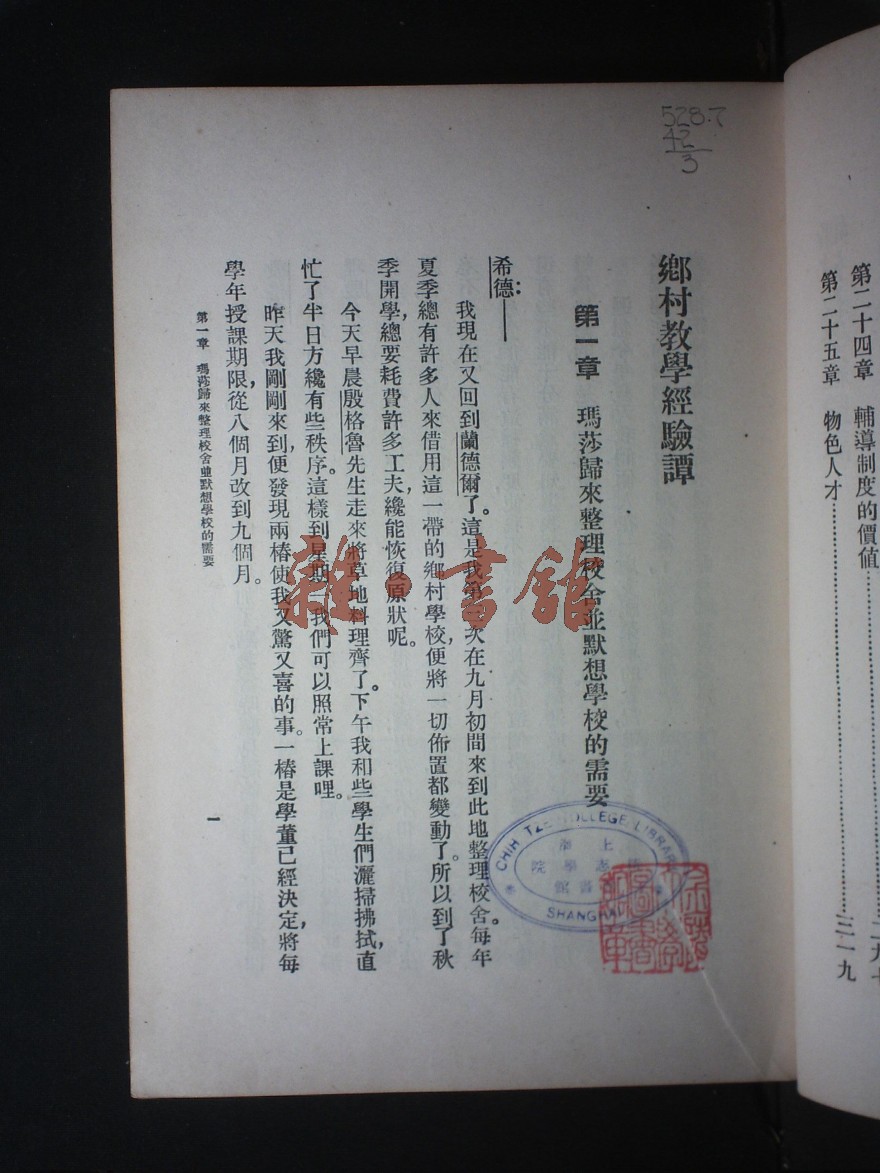 528.7
42
3
鄉村教學經驗譚
第一章 瑪莎歸來整理校舍並默想學校的需要
希德：——
我現在又回到蘭德爾了。這是我第二次在九月初間來到此地整理校舍。每年
夏季總有許多人來借用這一帶的鄉村學校，便將一切佈置都變動了。所以到了秋
季開學，總要耗費許多工夫纔能恢復原狀呢。
今天早晨殷格魯先生走來將草地料理齊了。下午我和些學生們灑掃拂拭，直
忙了半日方纔有些秩序。這樣到星期一我們可以照常上課哩。
昨天我剛剛來到，便發現兩樁使我又驚又喜的事。一樁是學董已經決定，將每
學年授課期限，從八個月改到九個月。
第一章 瑪莎歸來整理校舍並默想學校的需要
一
第二十四章 輔導制度的價值
第二十五章 物色人才 三一九
雜·書館
CHIH TZE COLLEGE LIBRARY
上海
志學院
書館
SHANGHAI